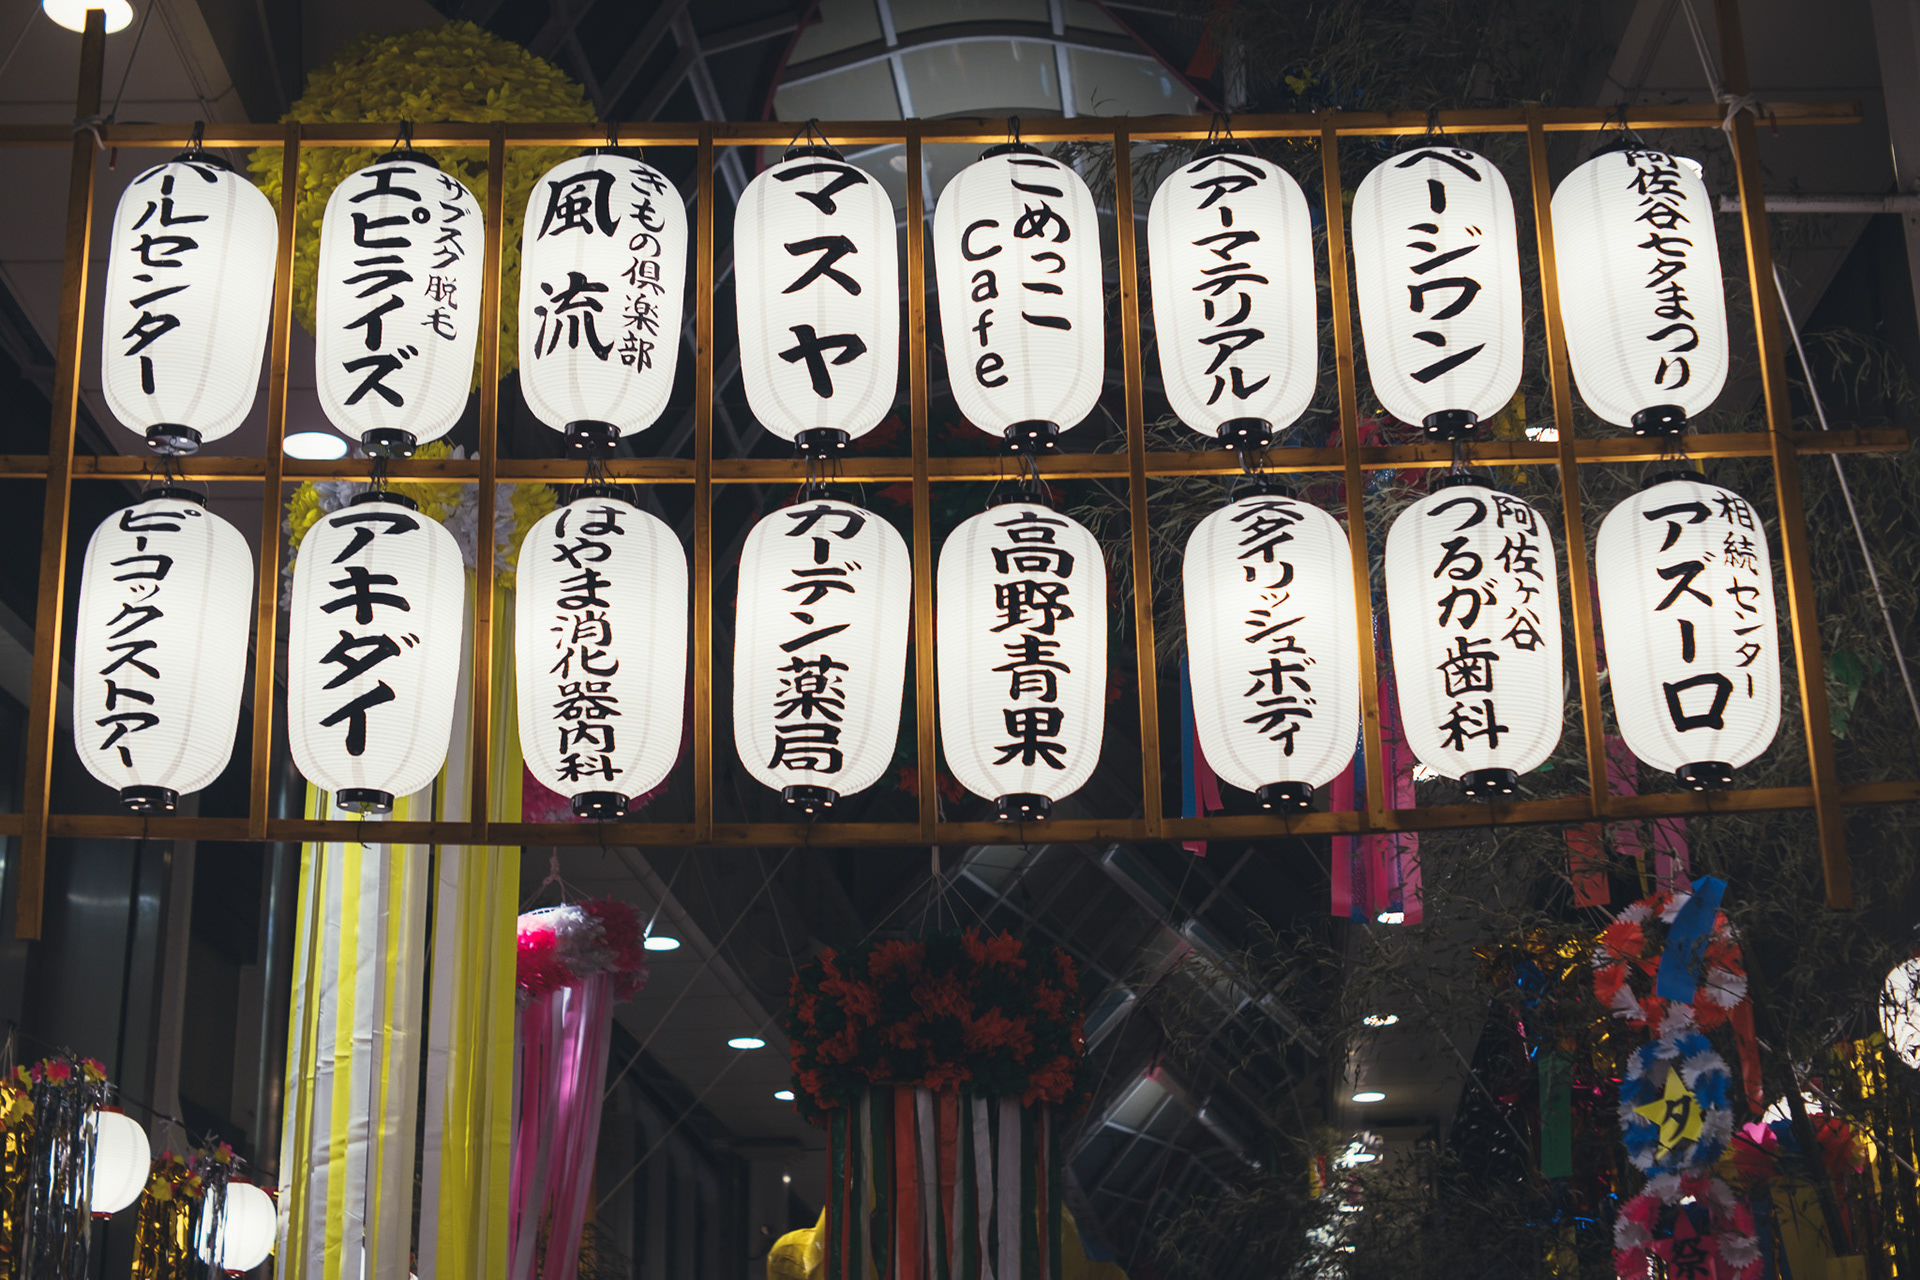 阿佐谷七夕まつり
ページワン
ヘアーマテリアル
こめっこ
Cafe
マスヤ
きもの倶楽部
風流
サブスク脱毛
エピライズ
パールセンター
相続センター
アズーロ
阿佐ヶ谷
つるが歯科
スタイリッシュボディ
高野青果
ガーデン薬局
はやま消化器内科
アキダイ
ピーコックストアー
夕
祭